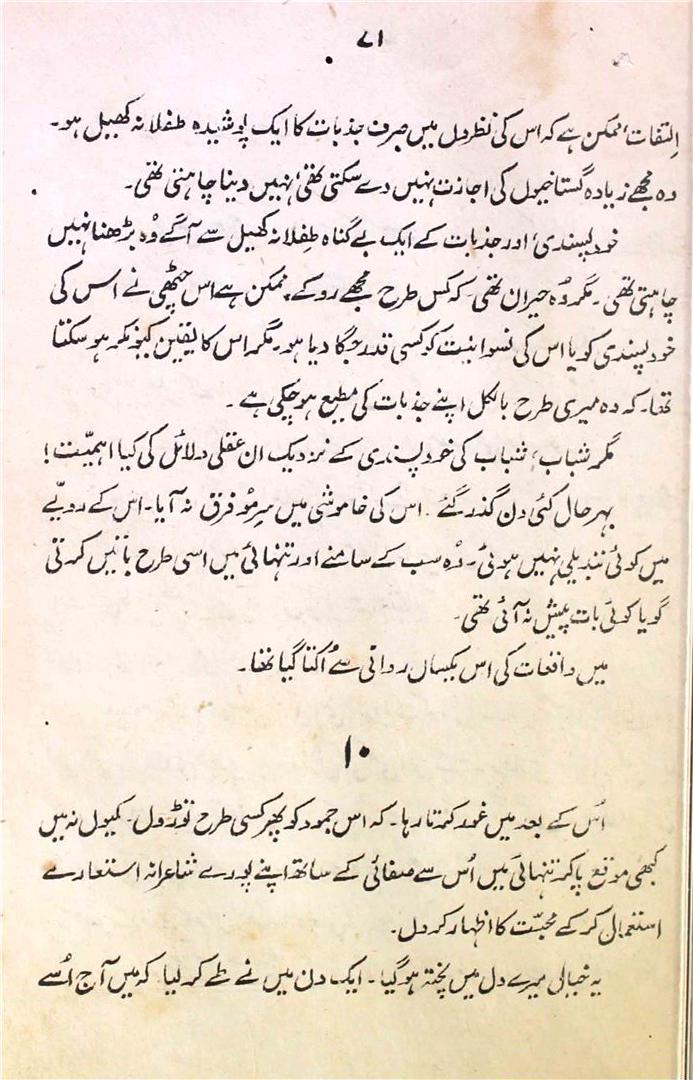 ۷۱
اِلتفات، ممکن ہے کہ اس کی نظروں میں صرف جذبات کا ایک پوشیدہ طفلانہ کھیل ہو۔
وہ مجھے زیادہ گستاخیوں کی اجازت نہیں دے سکتی تھی، نہیں دینا چاہتی تھی۔
خود پسندی، اور جذبات کے ایک بے گناہ طِفلانہ کھیل سے آگے وُہ بڑھنا نہیں
چاہتی تھی۔ مگر وُہ حیران تھی۔ کہ کس طرح مجھے روکے۔ ممکن ہے اس چٹھی نے اس کی
خود پسندی کو یا اس کی نسوانیت کو کسی قدر جگا دیا ہو۔ مگر اس کا یقین کیونکر ہو سکتا
تھا۔ کہ وہ میری طرح بالکل اپنے جذبات کی مطیع ہو چکی ہے۔
مگر شباب، شباب کی خود پسندی کے نزدیک ان عقلی دلائل کی کیا اہمیّت!
بہر حال کئی دن گذر گئے۔ اس کی خاموشی میں سرِمُو فرق نہ آیا۔ اس کے رویّے
میں کوئی تبدیلی نہیں ہوئی۔ وُہ سب کے سامنے اور تنہائی میں اسی طرح باتیں کرتی
گویا کوئی بات پیش نہ آئی تھی۔
میں واقعات کی اس یکساں روانی سے اُکتا گیا تھا۔
۱۰
اُس کے بعد میں غور کرتا رہا۔ کہ اس جمود کو پھر کسی طرح توڑ دوں۔ کیوں نہ میں
کبھی موقع پا کر تنہائی میں اُس سے صفائی کے ساتھ اپنے پورے شاعرانہ استعارے
استعمال کر کے محبّت کا اظہار کر دوں۔
یہ خیال میرے دل میں پختہ ہو گیا۔ ایک دن میں نے طے کر لیا۔ کہ میں آج اُسے